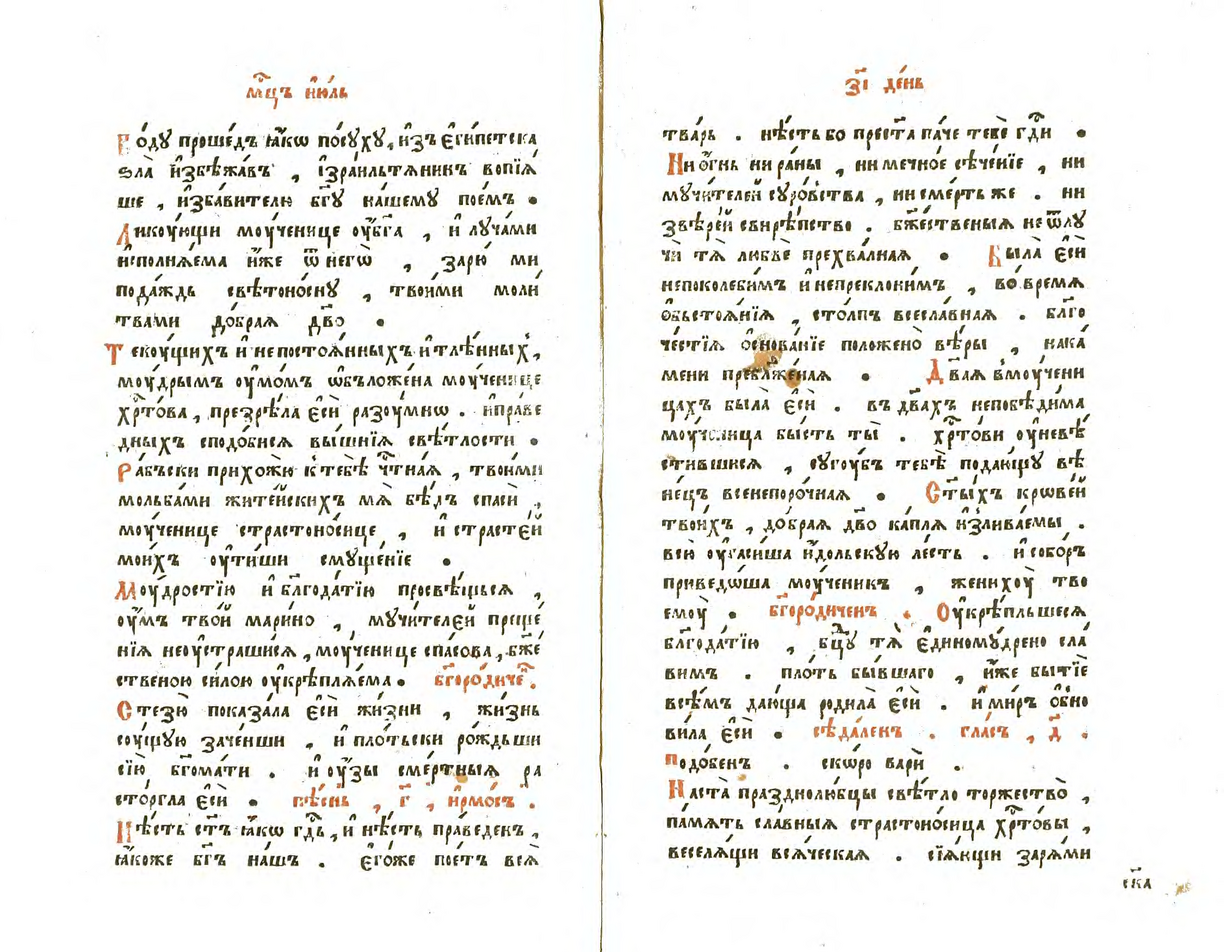 мц҃ъ ию́ль
Во́ду проше́дъ ꙗ҆́кѡ по́суху, и҆зъ є҆ги́петска
ѕла̀ и҆збѣжа́въ , і҆зраи́льтѧнинъ вопїѧ̀
ше , и҆зба́вителю бг҃у на́шему пое́мъ .
Лику́ющи моу́ченице оу҆ бг҃а , и҆ луча́ми
и҆сполнѧ́ема и҆́же ѿ негѡ̀ , зарю̀ ми
пода́ждь свѣтоно́сну , твои́ми моли
твами до́браѧ дв҃о .
Текоу́щихъ и҆ непостоѧ́нныхъ и҆ тлѣ́нныхъ,
моу́дрымъ оу҆мо́мъ ѡ҆бложе́на моу́ченице
хрⷭ҇то́ва , презрѣ́ла є҆сѝ разоу́мнѡ . и҆ пра́ве
дныхъ сподо́бисѧ вы́шнїѧ свѣ́тлости .
Ра́бъски прихожю̀ к тебѣ̀ чⷭ҇тнаѧ , твои́ми
мольба́ми жите́йскихъ мѧ̀ бѣ́дъ спасѝ ,
моу́ченице страстоно́сице , и҆ страсте́й
мои́хъ оу҆ти́ши смуще́нїе .
Моу́дростїю и҆ блг҃ода́тїю просвѣ́щьсѧ ,
оу҆́мъ тво́й мари́но , мучи́телей преще
нїѧ неоу҆страши́сѧ , моу́ченице спа́сова , бж҃е
ственою си́лою оу҆крѣплѧ́ема . бг҃оро́диче .
Стезю̀ показа́ла є҆сѝ жи́зни , жи́знь
соу́щую заче́нши , и҆ пло́тьски ро́ждьши
сїю̀ бг҃ома́ти . и҆ оу҆́зы сме́ртныѧ ра
сто́ргла є҆сѝ . пѣ́снь , г҃ , и҆рмо́съ .
Нѣ́сть ст҃ъ ꙗ҆́кѡ гдⷭ҇ь , и҆ нѣ́сть пра́веденъ ,
ꙗ҆́коже бг҃ъ на́шъ . є҆го́же пое́тъ всѧ̀
з҃і де́нь
тва́рь . нѣ́сть бо прест҃а па́че тебѐ гдⷭ҇и .
Ни ѻ҆́гнь ни ра́ны , ни ме́чное сѣче́нїе , ни
мучи́телей суро́вства , ни сме́рть же . ни
звѣре́й свирѣ́пство . бж҃е́ственыѧ не ѿлу
чѝ тѧ̀ любвѐ прехва́лнаѧ . Была̀ є҆сѝ
непоколеби́мъ и҆ непрекло́нимъ , во вре́мѧ
ѻ҆бьстоѧ́нїѧ , сто́лпъ всесла́внаѧ . блг҃о
че́стїѧ ѻ҆снова́нїе положено̀ вѣ́ры , на ка́
мени пребл҃же́наѧ . Два́ѧ в моу́чени
цахъ была̀ є҆сѝ . въ два́хъ непобѣди́ма
моу́ченица бы́сть ты̀ . хрⷭ҇то́ви оу҆невѣ
стившисѧ , сугоу́бъ тебѣ̀ подаю́щу вѣ
не́цъ всенепоро́чнаѧ . Ст҃ы́хъ кро́вей
твои́хъ , до́браѧ дв҃о ка́плѧ и҆злива́емы .
всю̀ оу҆гаси́ша и҆́дольскую ле́сть . и҆ собо́ръ
приведо́ша моу́ченикъ , женихоу̀ тво
емоу̀ . бг҃оро́диченъ . Оу҆крѣ́пльшеесѧ
блг҃ода́тїю , бцⷣу тѧ̀ є҆диному́дрено сла́
вимъ . пло́ть бы́вшаго , и҆́же бытїѐ
всѣ́мъ даю́ща родила̀ є҆сѝ . и҆ ми́ръ ѻ҆бно
вила є҆сѝ . сѣда́ленъ . гла́съ , д҃ .
подо́бенъ . ско́ро варѝ .
Наста̀ праздиолю́бцы свѣ́тло торжество̀ ,
па́мѧть сла́вныѧ страстоно́сица хрⷭ҇то́вы ,
веселѧ́щи всѧ́ческаѧ . сїѧ́ющи зарѧ́ми
ск҃а